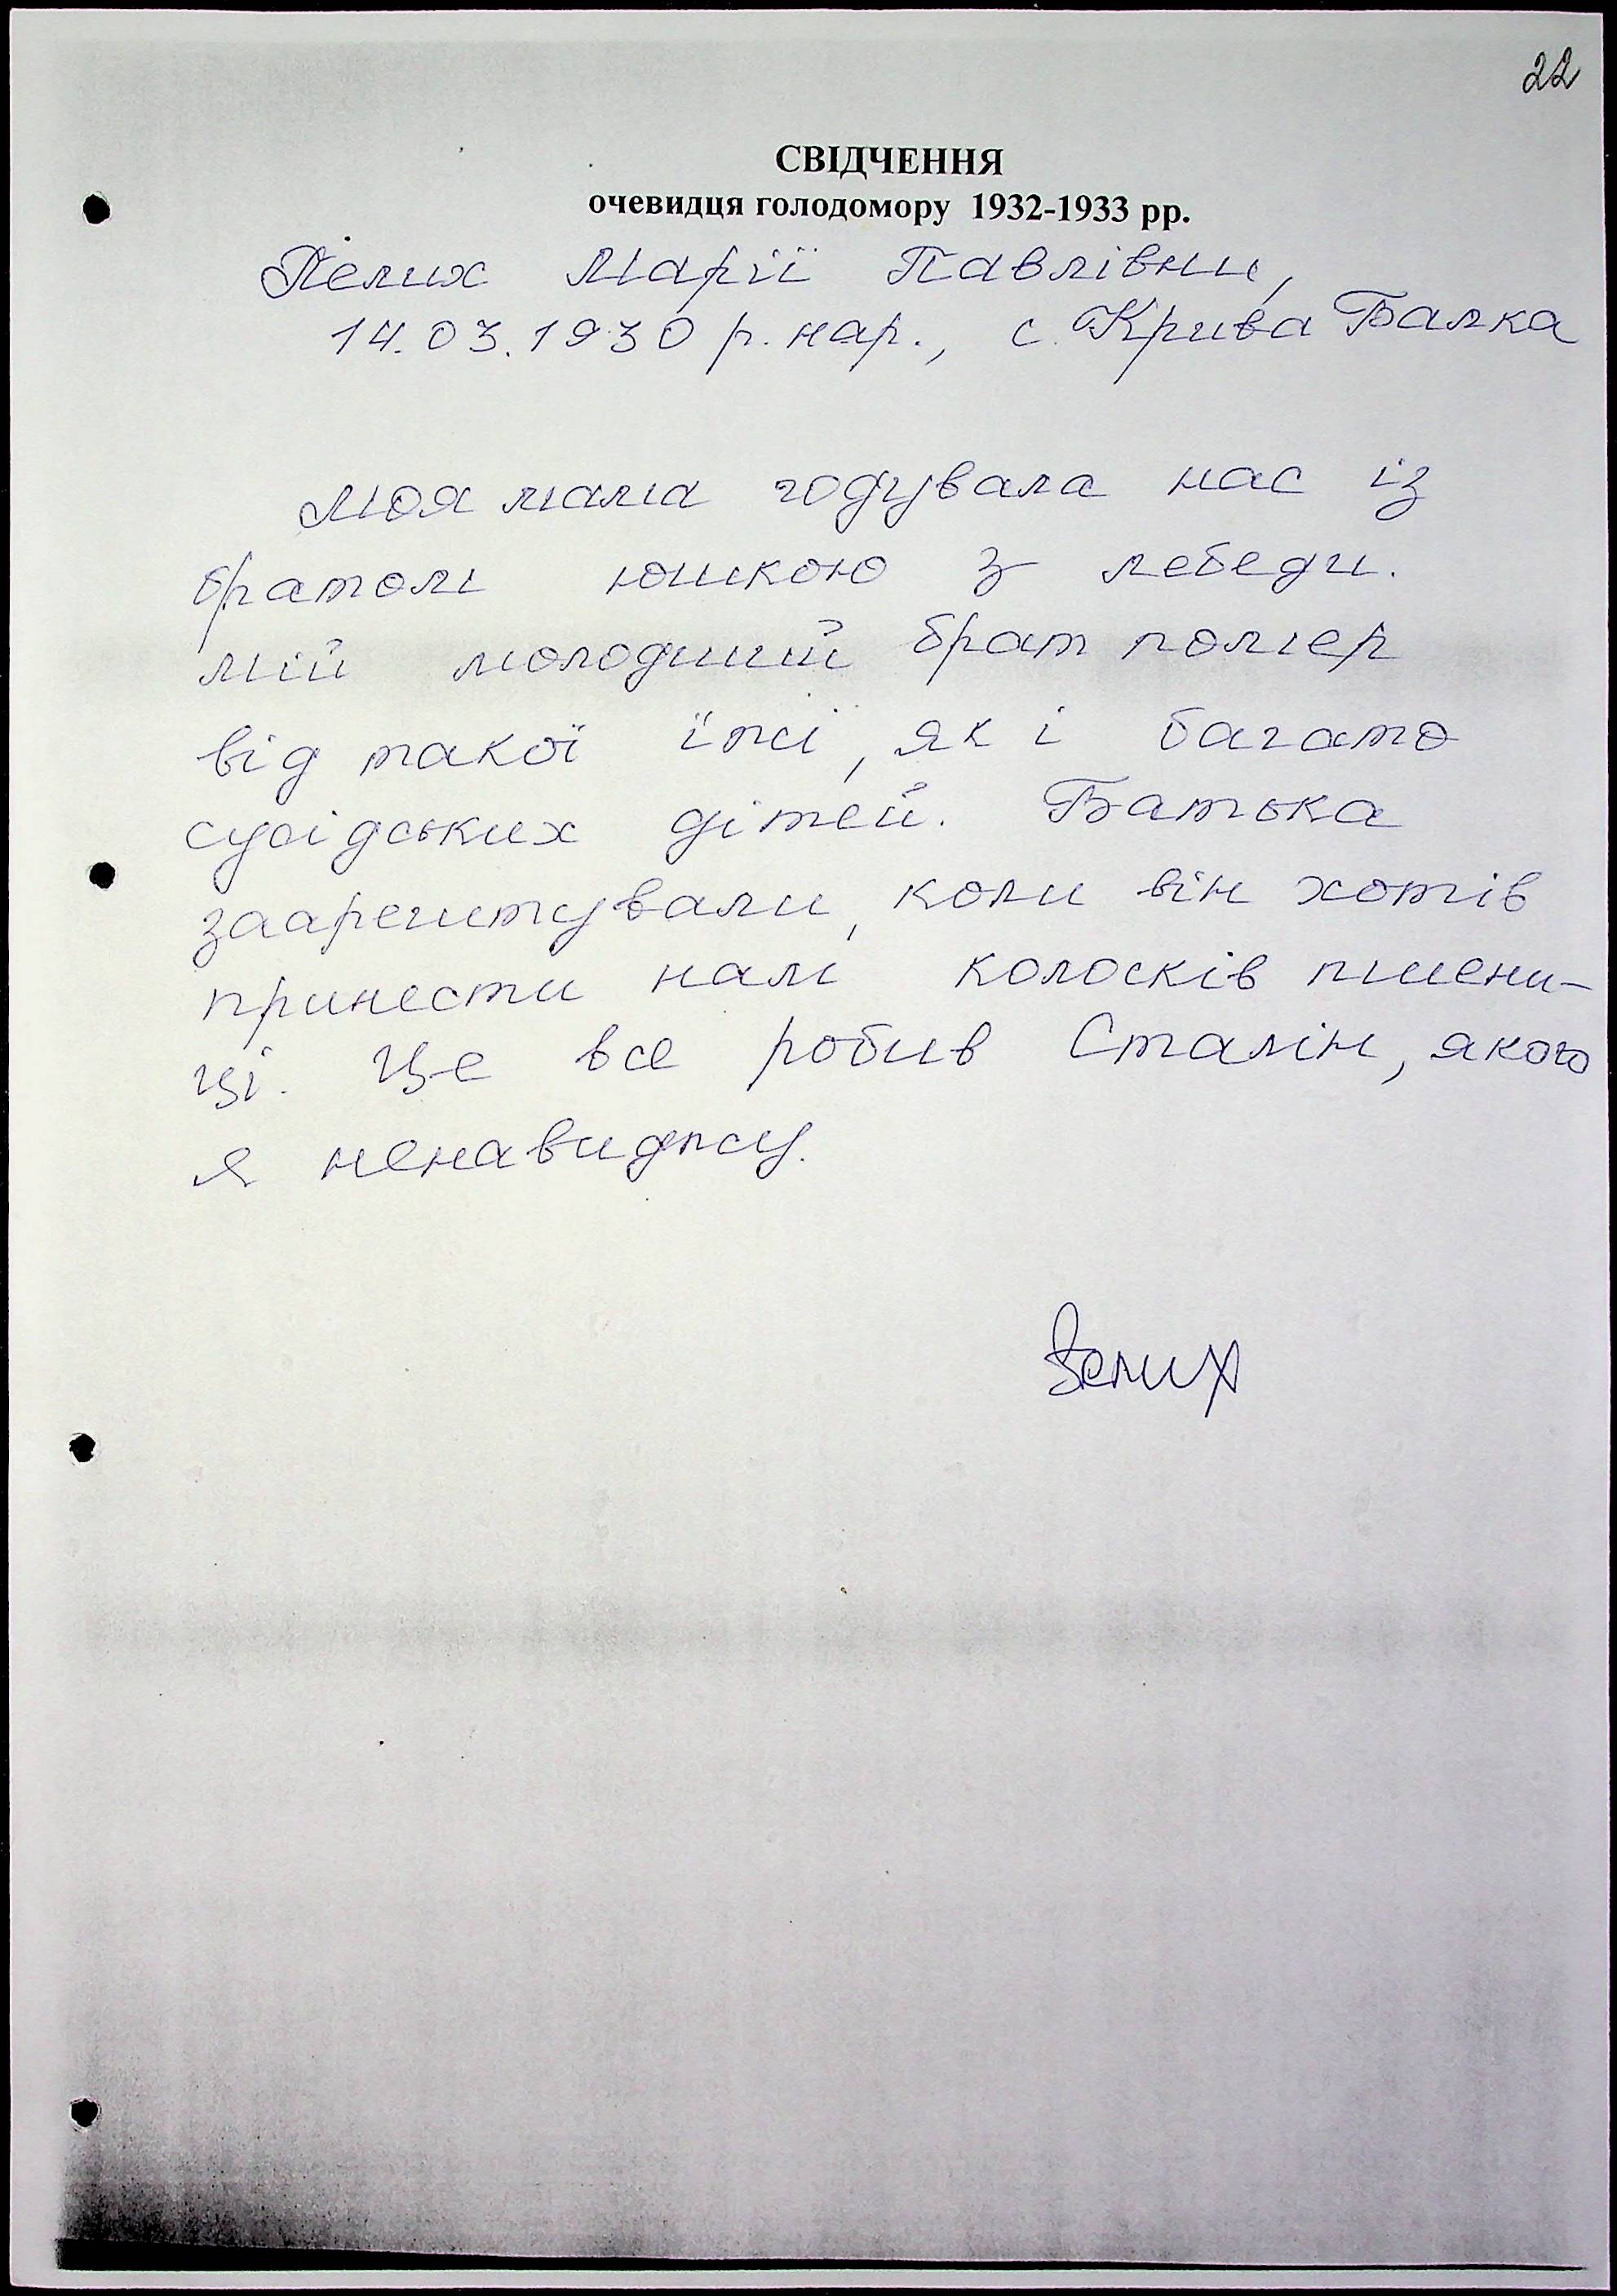 22
СВІДЧЕННЯ
очевидця голодомору 1932-1933 рр.
Марії Павлівни,
14.03.1930 р. нар., с. Крива Балка
Моя мама годувала нас із
братом юшкою з лебеди.
Мій молодший брат помер
від такої їжі, як і багато
сусідських дітей. Батька
заарештували, коли він хотів
принести нам колосків пшени-
ці. Це все робив Сталін, якого
я ненавиджу.